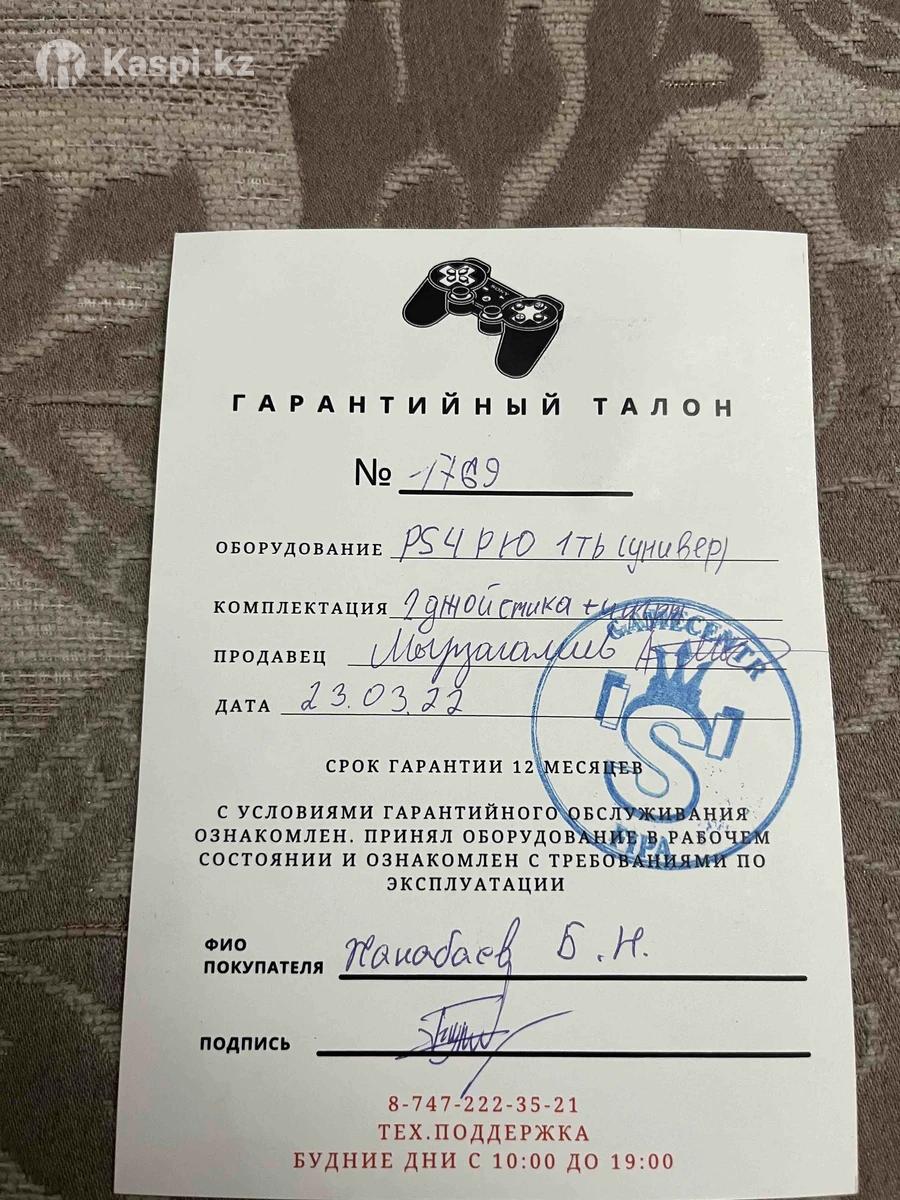 Kaspi.kz
SONY
ГАРАНТИЙНЫЙ ТАЛОН
№ 1769
ОБОРУДОВАНИЕ PS4 PRO 1ТЬ (универ)
КОМПЛЕКТАЦИЯ 2 джойстика +
ПРОДАВЕЦ Мырзагалиев А
ДАТА 23.03.22
GAMECENTR
S
СРОК ГАРАНТИИ 12 МЕСЯЦЕВ
С УСЛОВИЯМИ ГАРАНТИЙНОГО ОБСЛУЖИВАНИЯ
ОЗНАКОМЛЕН. ПРИНЯЛ ОБОРУДОВАНИЕ В РАБОЧЕМ
СОСТОЯНИИ И ОЗНАКОМЛЕН С ТРЕБОВАНИЯМИ ПО
ЭКСПЛУАТАЦИИ
ФИО
ПОКУПАТЕЛЯ Жанабаев Б.Н.
ПОДПИСЬ
8-747-222-35-21
ТЕХ.ПОДДЕРЖКА
БУДНИЕ ДНИ С 10:00 ДО 19:00